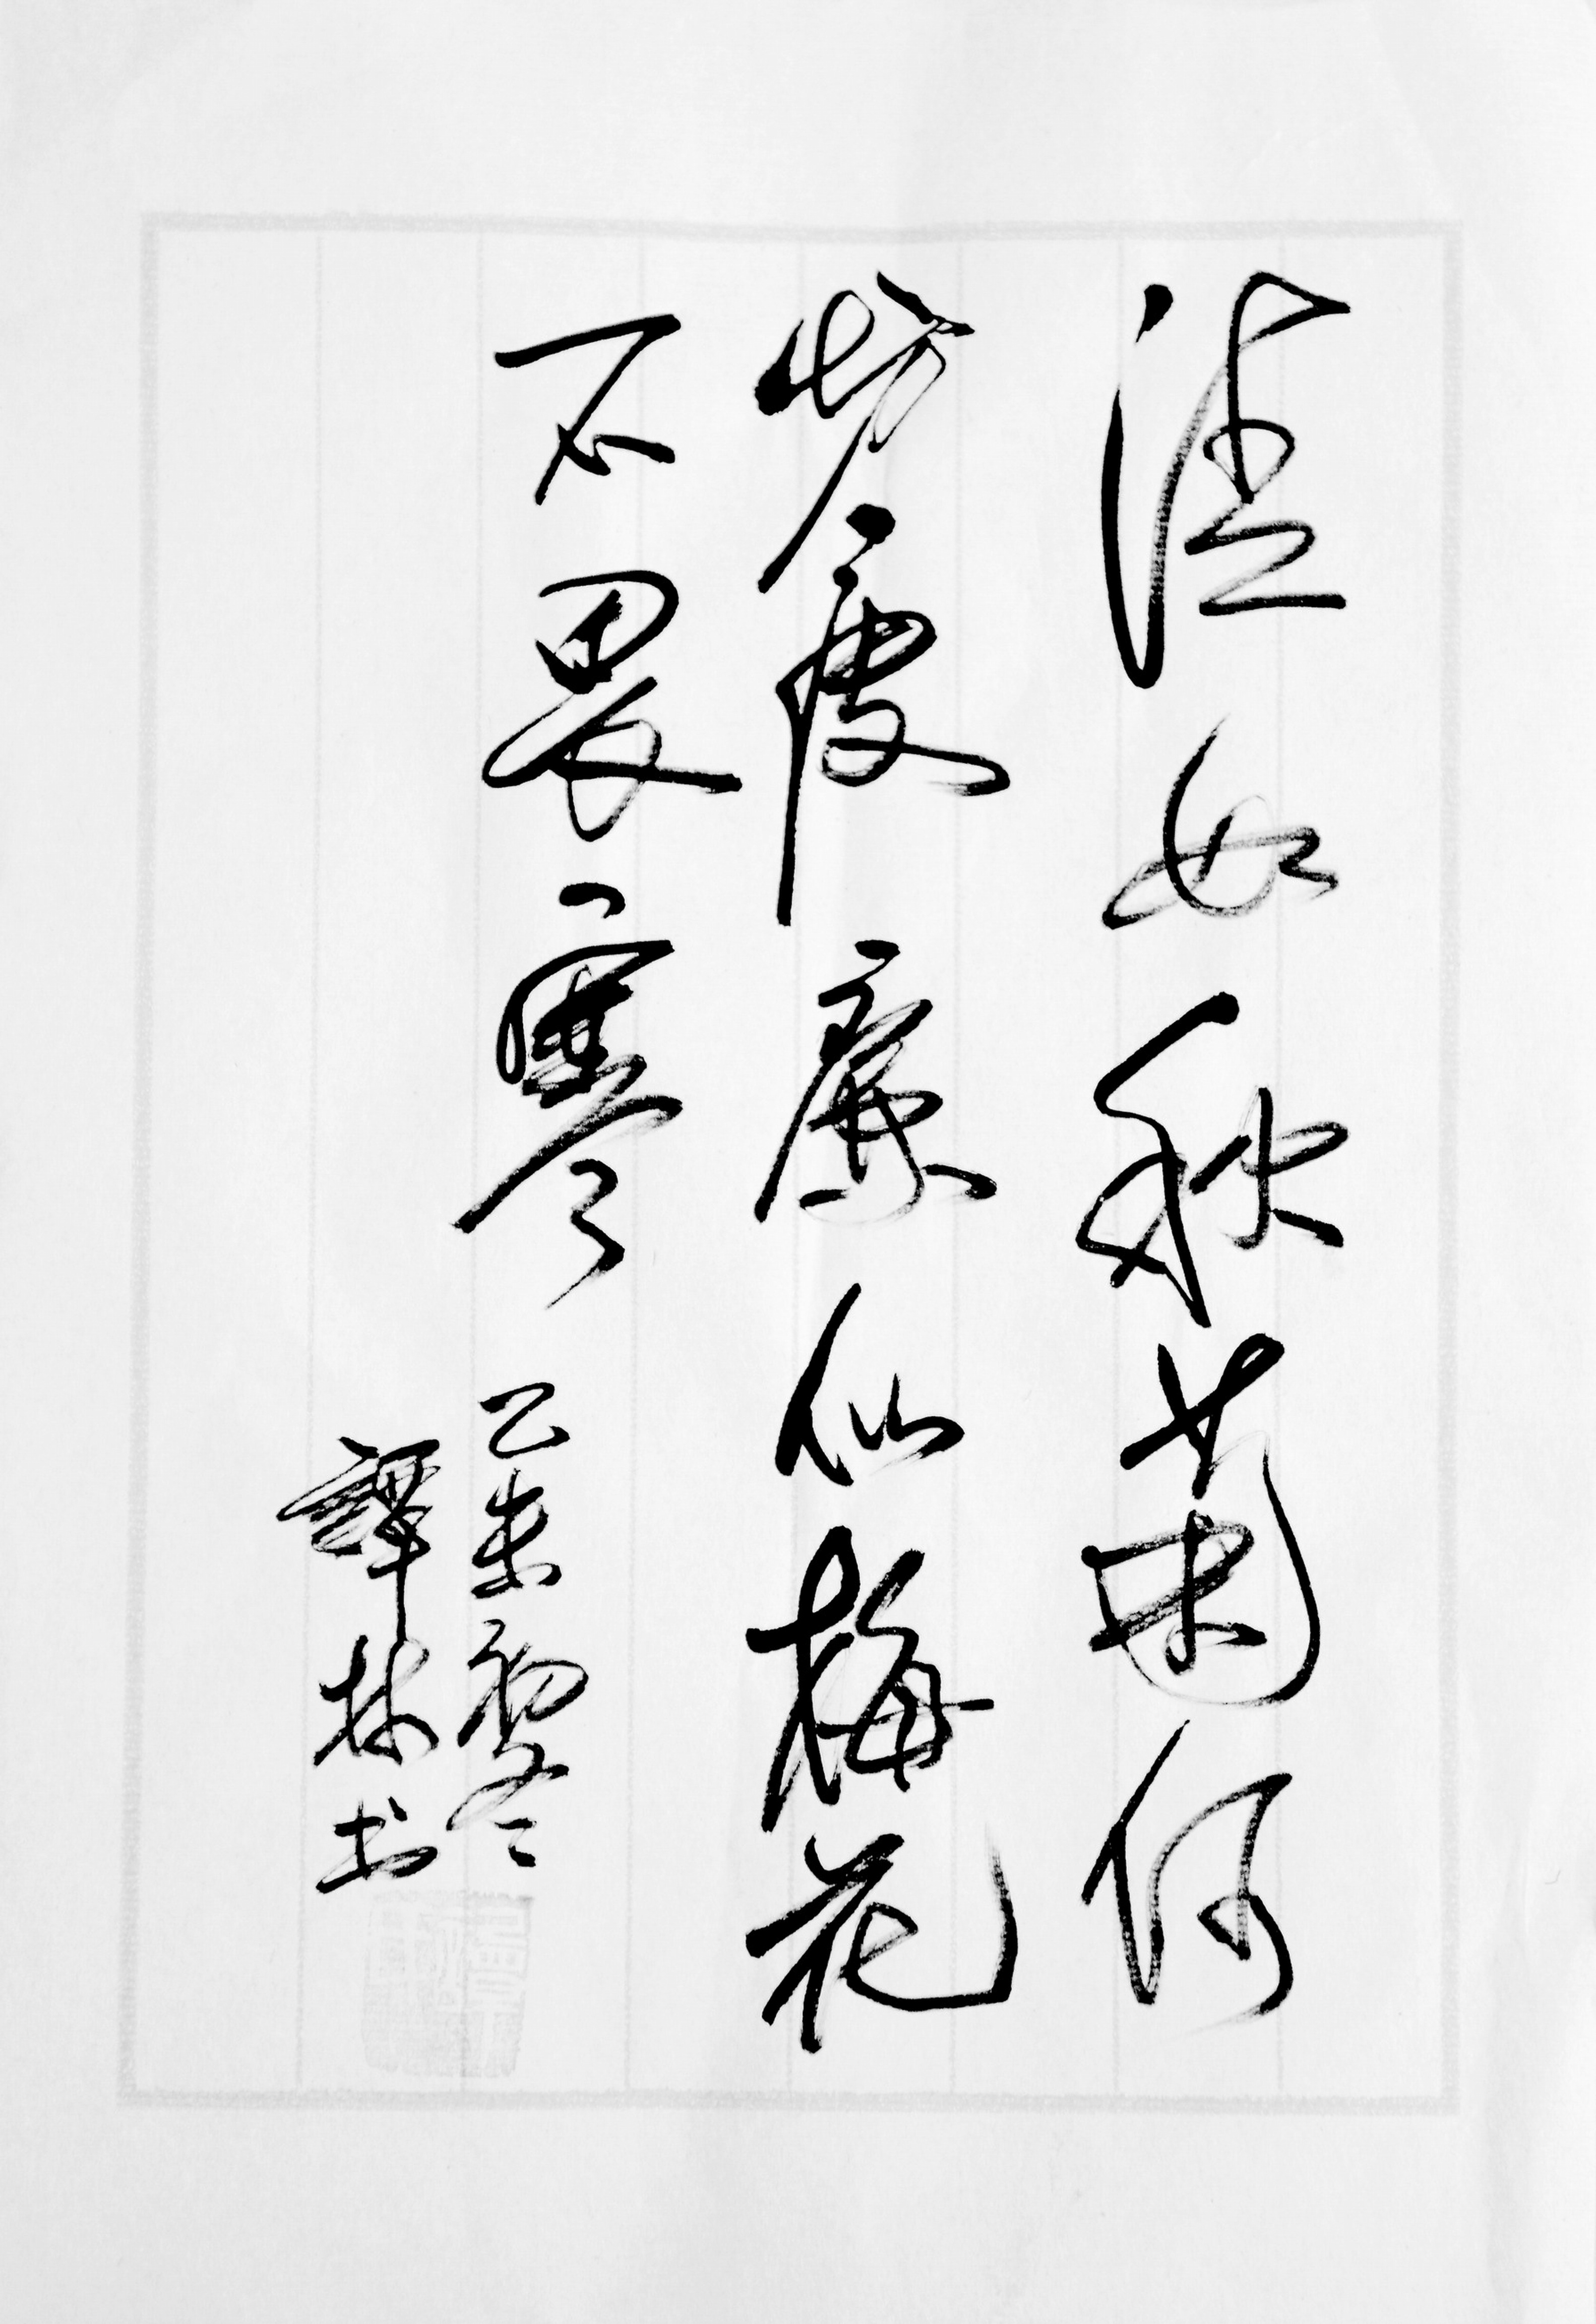 清如秋菊何
妨瘦廉似梅花
不畏寒
乙未初冬
譚林书